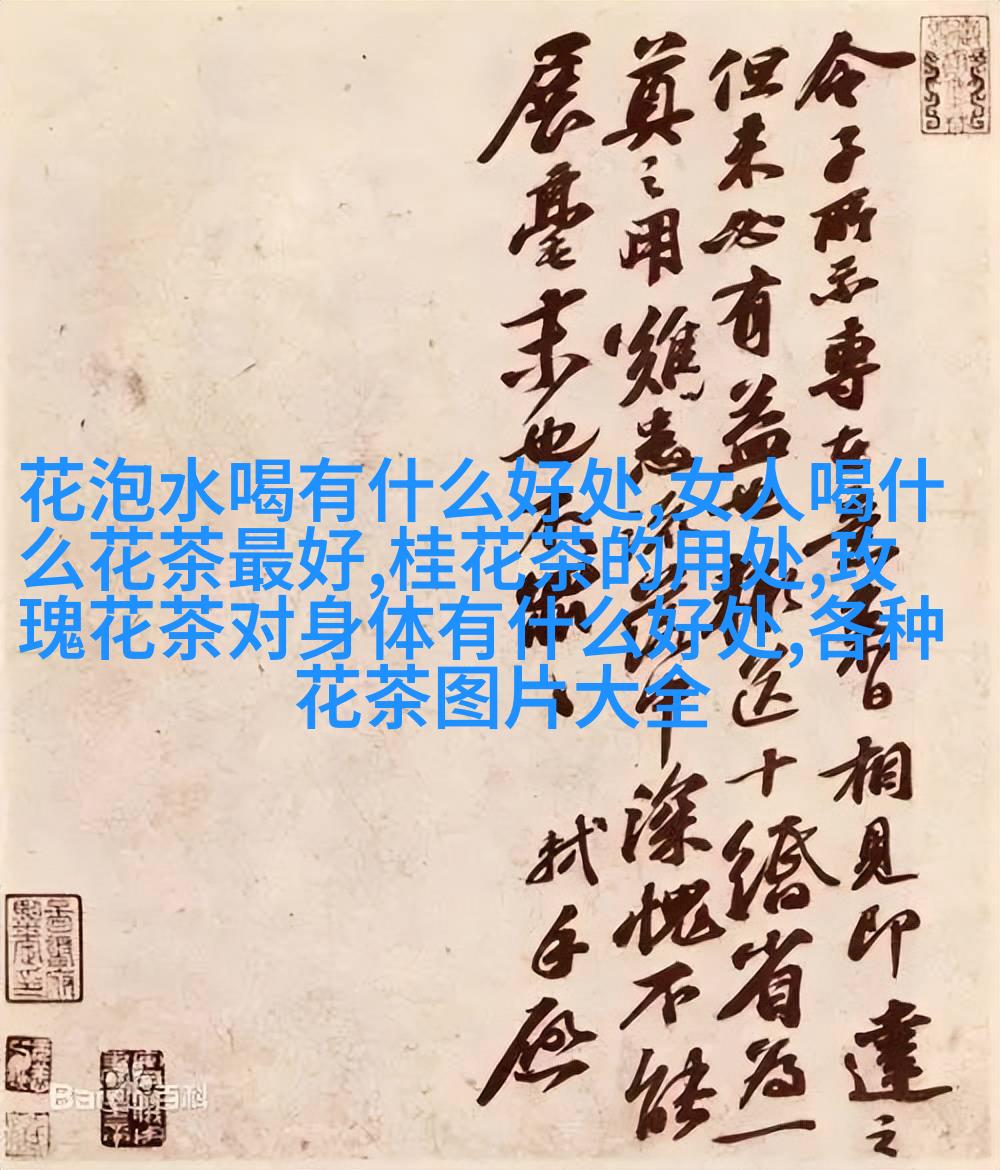 令子所示專在日相見即達之
但未必有益也輒送十縑省為一
奠之用難患中深愧不能
展毫末也不
軾手啟
花泡水喝有什么好处,女人喝什
么花茶最好,桂花茶的用处,玫
瑰花茶对身体有什么好处,各种
花茶图片大全
Baidu百科